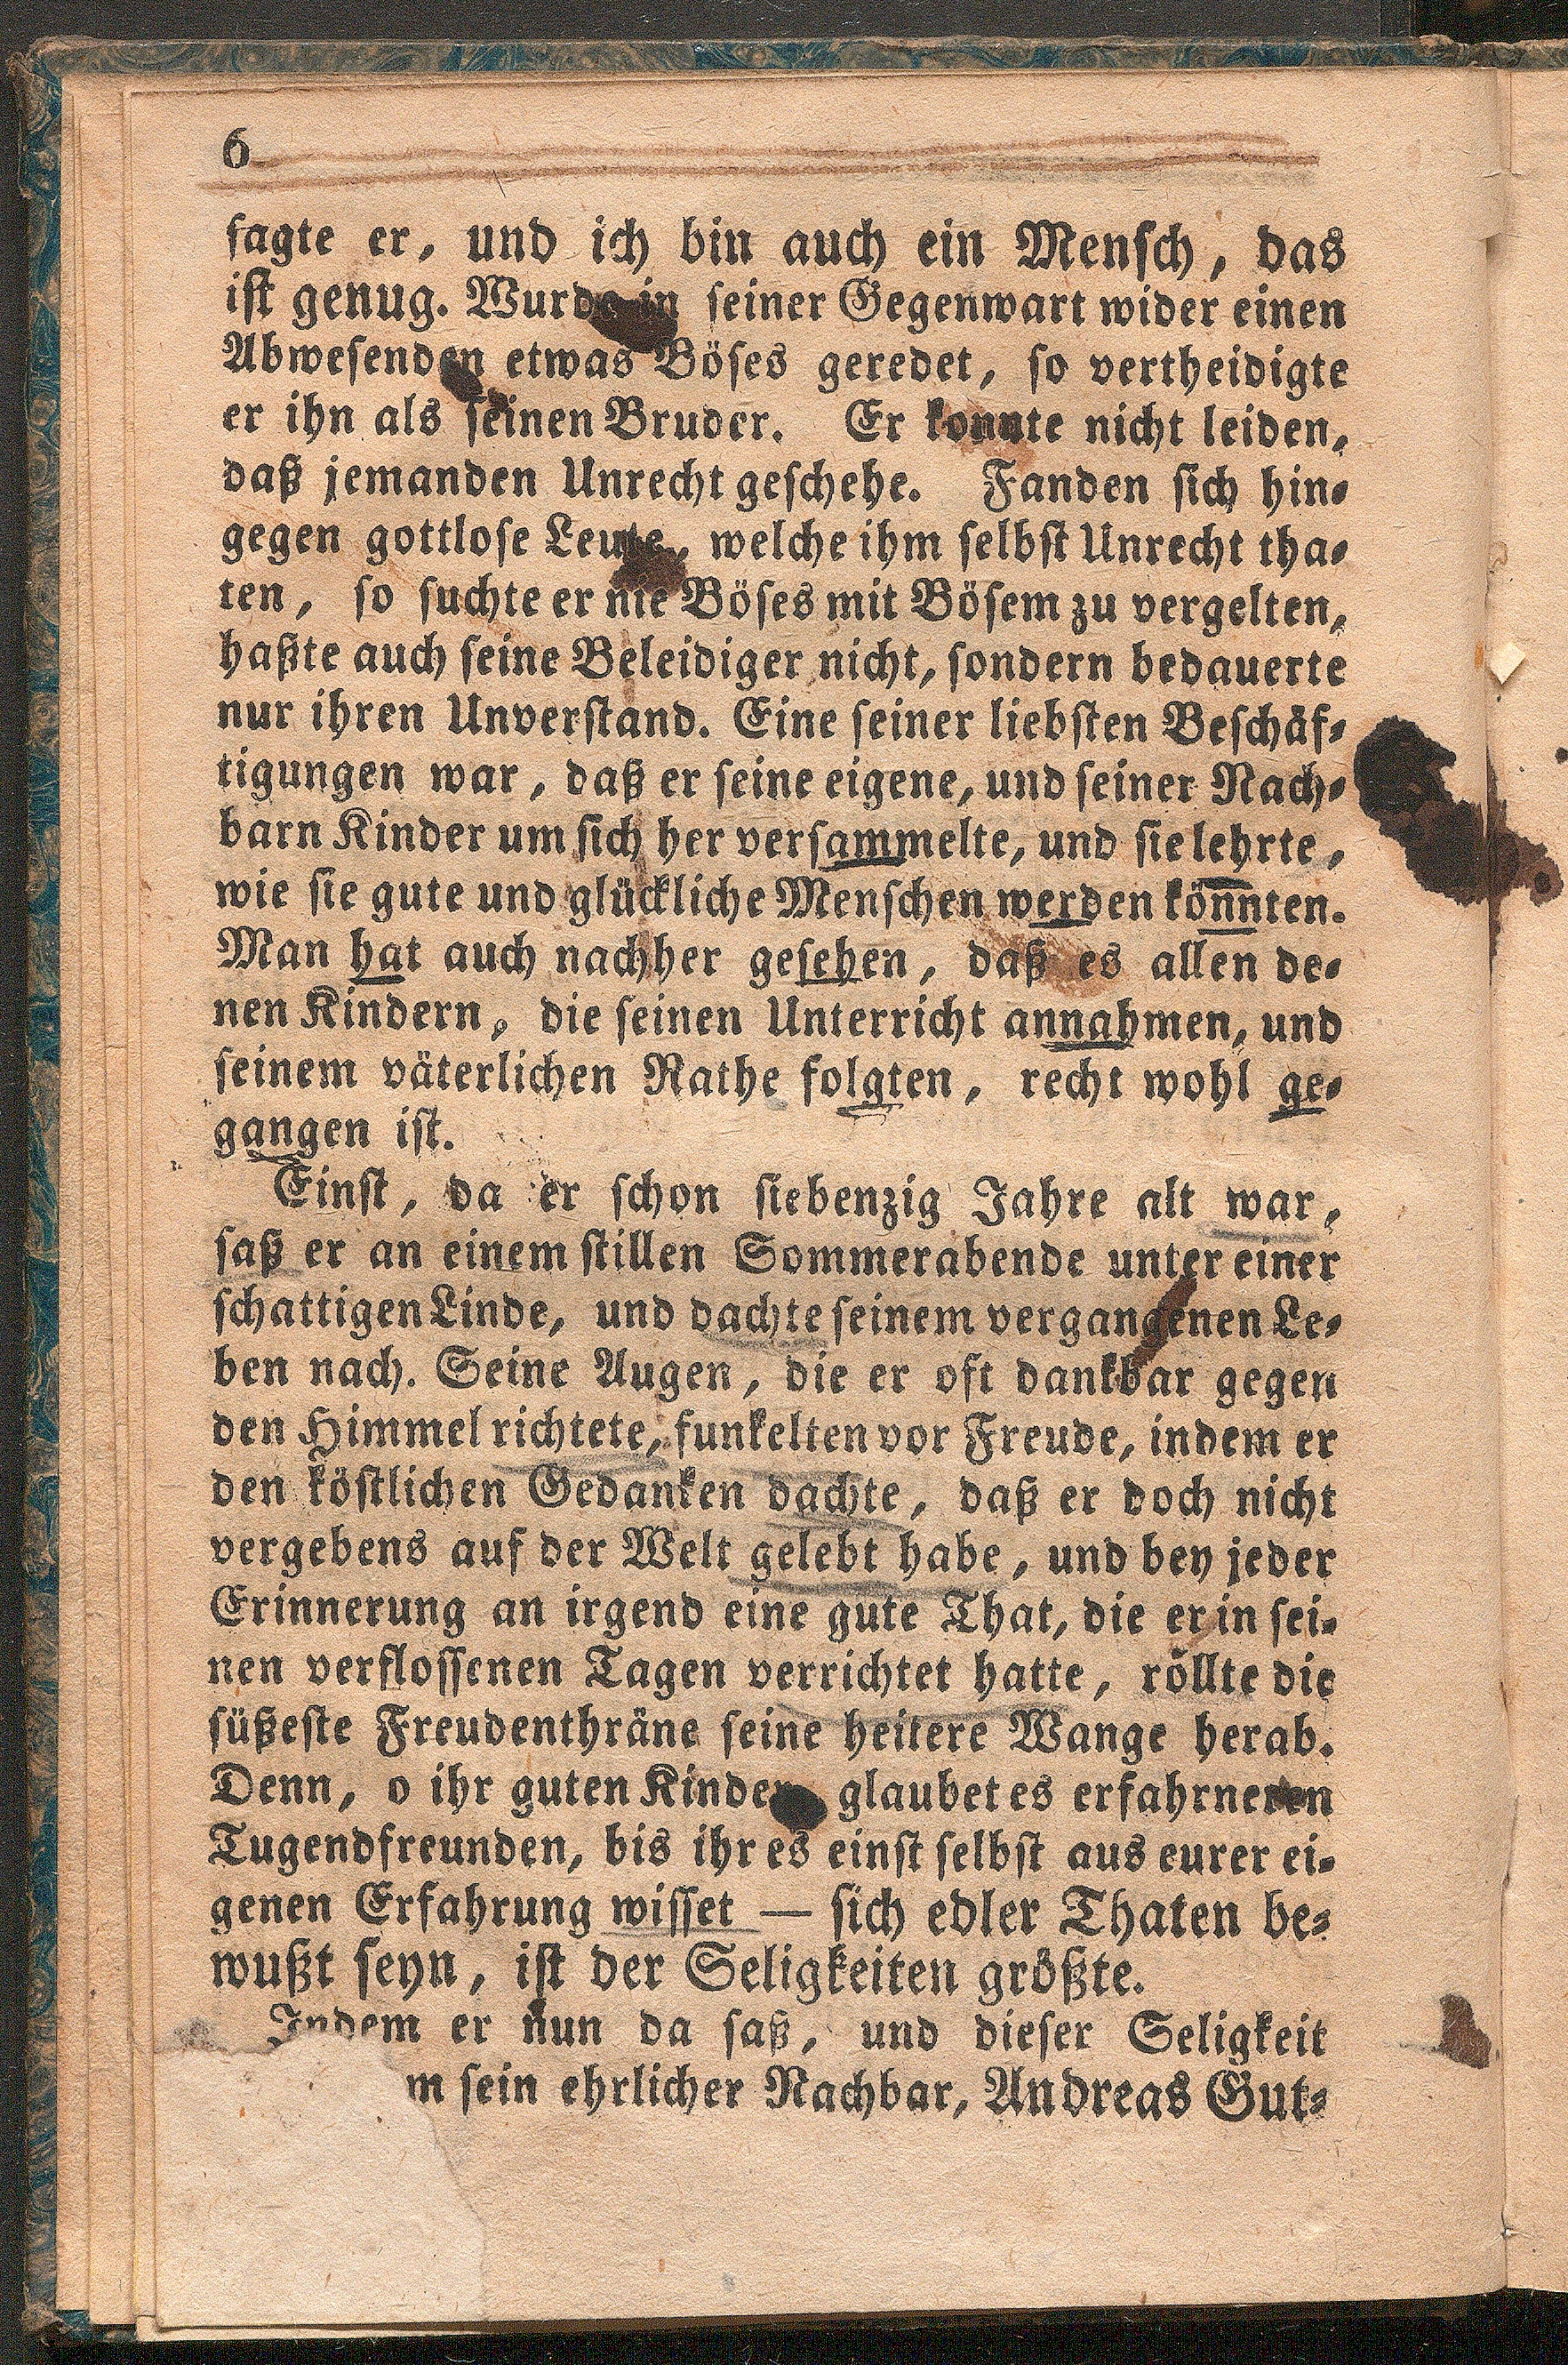 6
ſagte er, und ich bin auch ein Menſch, das
iſt genug. Wurde in ſeiner Gegenwart wider einen
Abweſenden etwas Böſes geredet, ſo vertheidigte
er ihn als ſeinen Bruder. Er konnte nicht leiden,
daß jemanden Unrecht geſchehe. Fanden ſich hin⸗
gegen gottloſe Leute, welche ihm ſelbſt Unrecht tha⸗
ten, ſo ſuchte er nie Böſes mit Böſem zu vergelten,
haßte auch ſeine Beleidiger nicht, ſondern bedauerte
nur ihren Unverſtand. Eine ſeiner liebſten Beſchäf⸗
tigungen war, daß er ſeine eigene, und ſeiner Nach⸗
barn Kinder um ſich her verſammelte, und ſie lehrte,
wie ſie gute und glückliche Menſchen werden könnten.
Man hat auch nachher geſehen, daß es allen de⸗
nen Kindern, die ſeinen Unterricht annahmen, und
ſeinem väterlichen Rathe folgten, recht wohl ge⸗
gangen iſt.
Einſt, da er ſchon ſiebenzig Jahre alt war,
ſaß er an einem ſtillen Sommerabende unter einer
ſchattigen Linde, und dachte ſeinem vergangenen Le⸗
ben nach. Seine Augen, die er oft dankbar gegen
den Himmel richtete, funkelten vor Freude, indem er
den köſtlichen Gedanken dachte, daß er doch nicht
vergebens auf der Welt gelebt habe, und bey jeder
Erinnerung an irgend eine gute That, die er in ſei⸗
nen verfloſſenen Tagen verrichtet hatte, röllte die
ſüßeſte Freudenthräne ſeine heitere Wange herab.
Denn, o ihr guten Kinder glaubet es erfahrneren
Tugendfreunden, bis ihr es einſt ſelbſt aus eurer ei⸗
genen Erfahrung wiſſet — ſich edler Thaten be⸗
wußt ſeyn, iſt der Seligkeiten größte.
Indem er nun da ſaß, und dieſer Seligkeit
m ſein ehrlicher Nachbar, Andreas Gut⸗